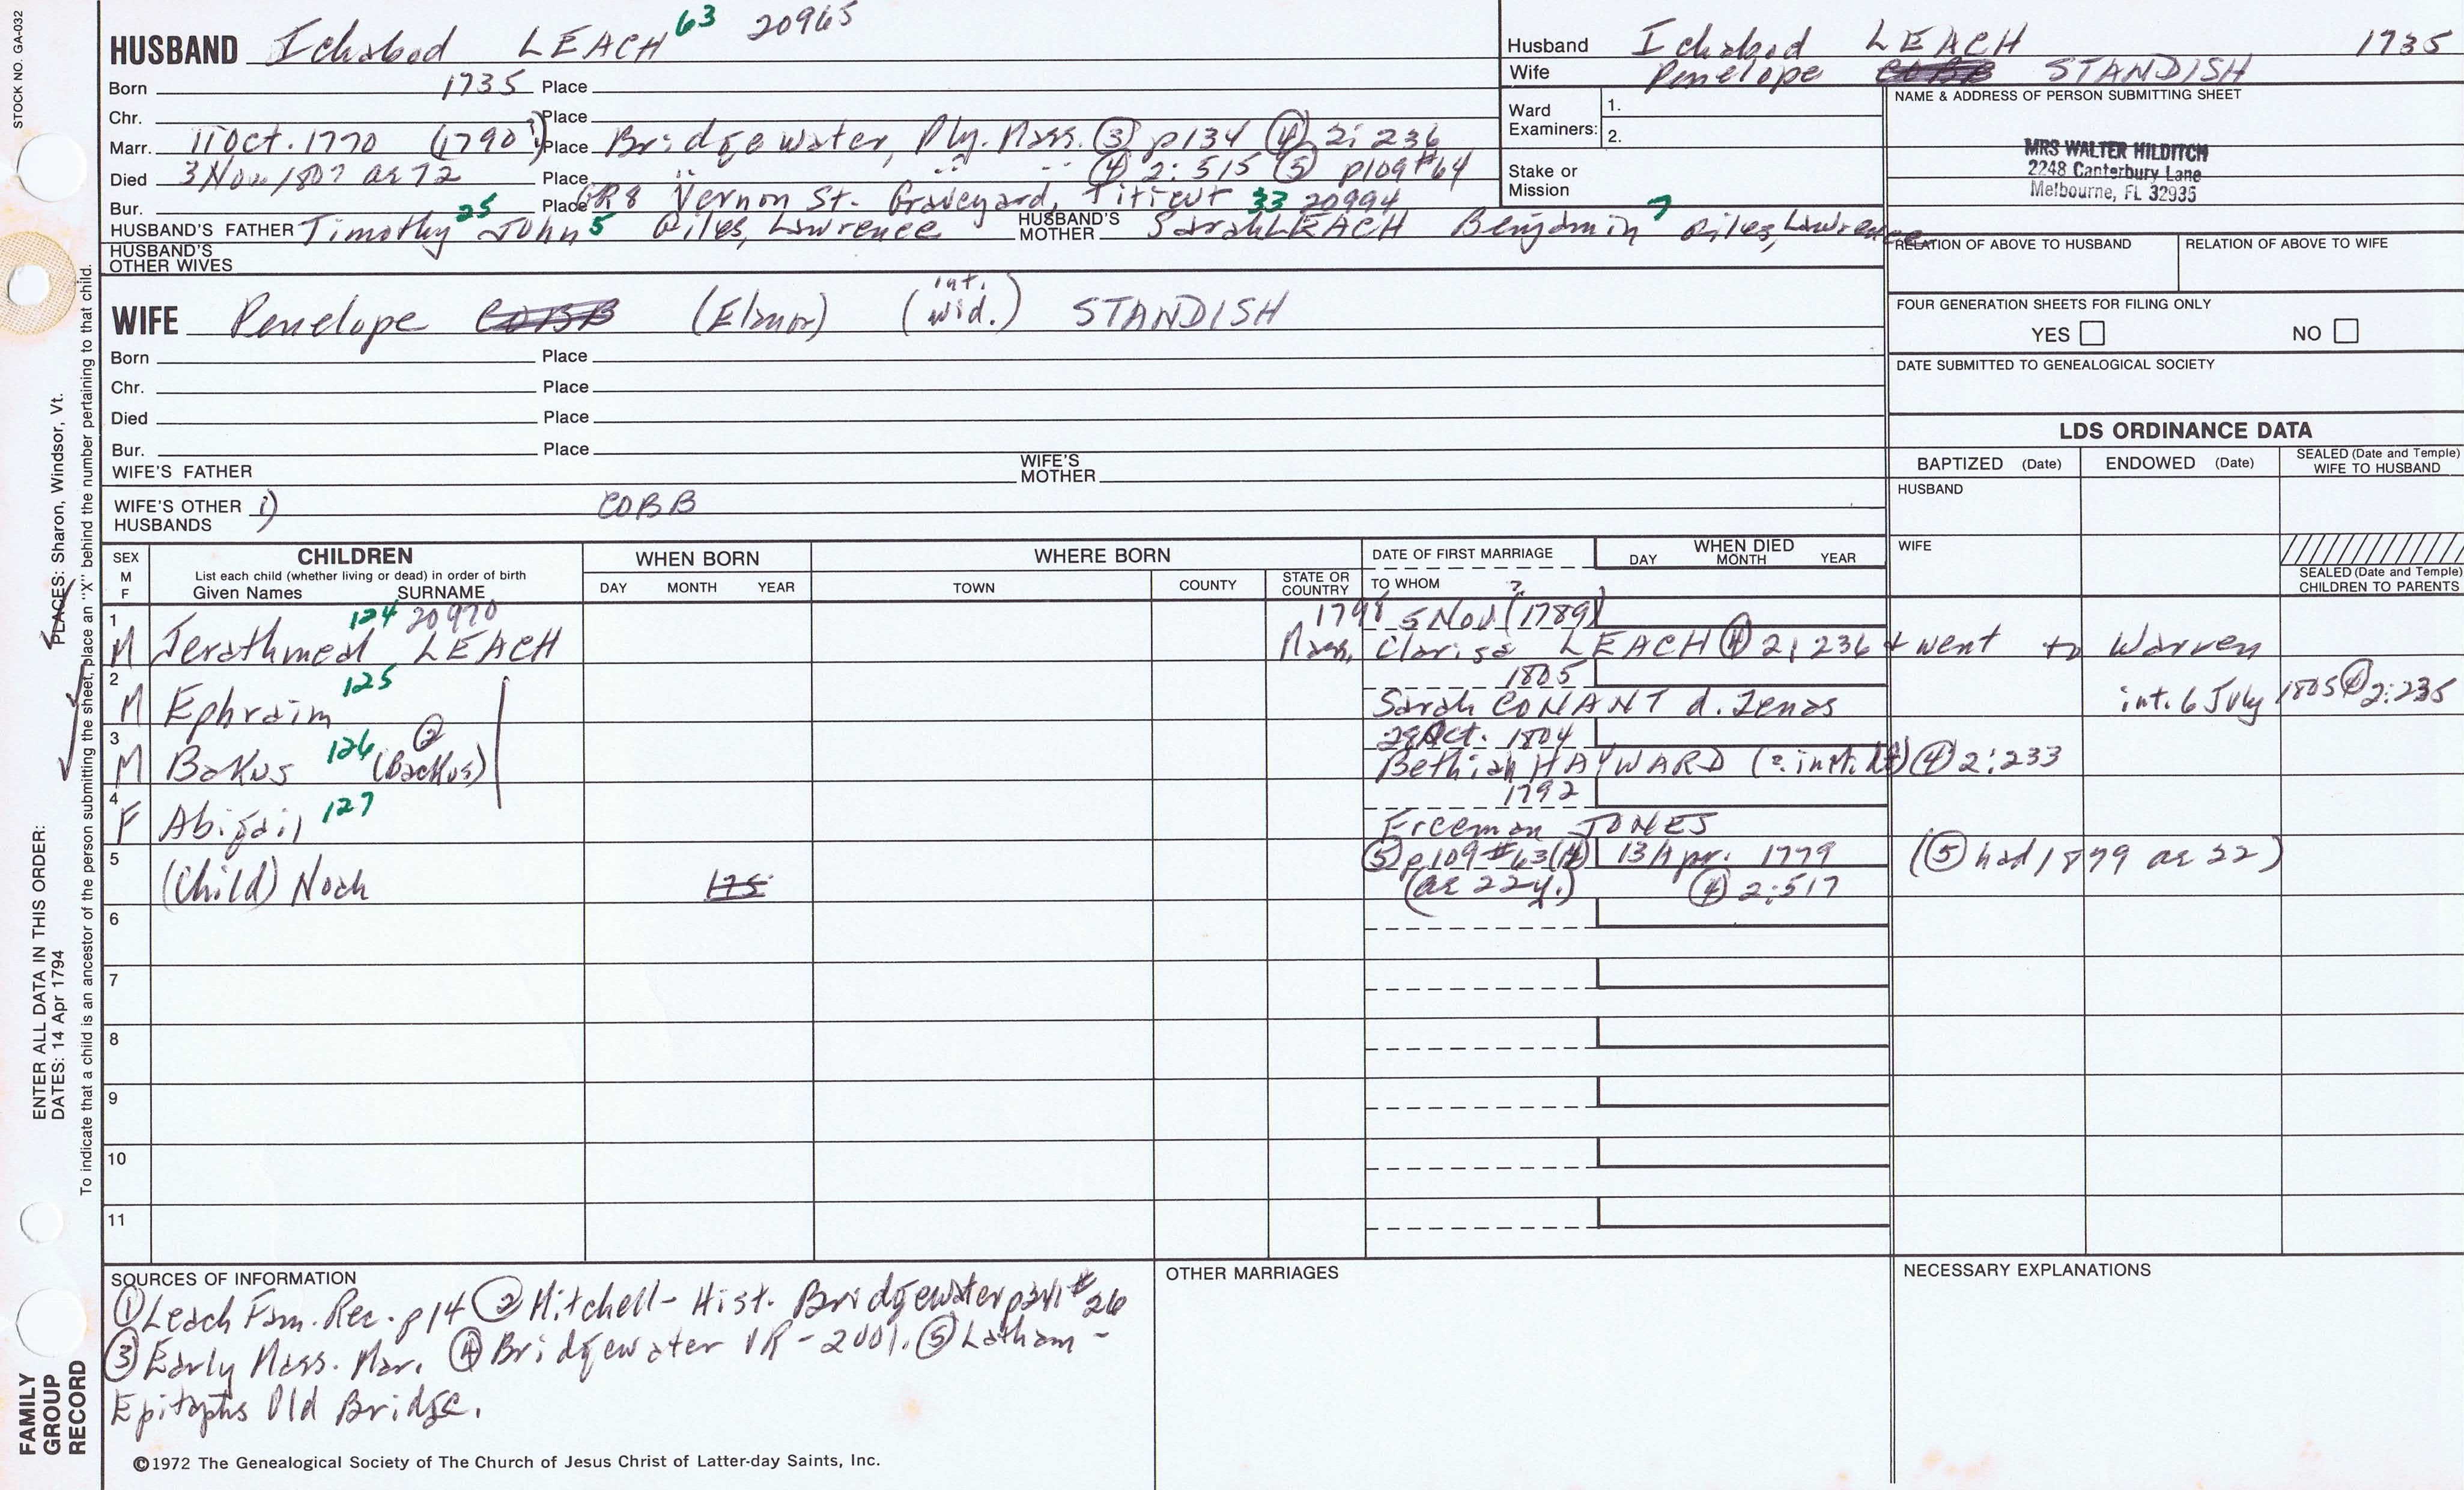 STOCK NO. GA-032
HUSBAND Ichabod LEACH 63 20965
Born 1735 Place
Chr. Place
Marr. 11 Oct. 1770 (1790?) Place Bridgewater, Ply. Mass. ③ p134 ④ 2:236
Died 3 Nov 1807 ae 72 Place " " " ④ 2:515 ⑤ p109 #64
Bur. Place GR8 Vernon St. Graveyard, Titicut 33 20994
HUSBAND'S FATHER Timothy 25 John 5 Giles, Lawrence HUSBAND'S MOTHER Sarah LEACH Benjamin 7 Giles, Lawrence
HUSBAND'S OTHER WIVES
WIFE Penelope COBB (Elanor) (int. wid.) STANDISH
Born Place
Chr. Place
Died Place
Bur. Place
WIFE'S FATHER WIFE'S MOTHER
WIFE'S OTHER HUSBANDS 1) COBB
Husband Ichabod LEACH 1735
Wife Penelope COBB STANDISH
Ward Examiners: 1.
2.
Stake or Mission
NAME & ADDRESS OF PERSON SUBMITTING SHEET
MRS WALTER HILDITCH
2248 Canterbury Lane
Melbourne, FL 32935
RELATION OF ABOVE TO HUSBAND RELATION OF ABOVE TO WIFE
FOUR GENERATION SHEETS FOR FILING ONLY
YES NO
DATE SUBMITTED TO GENEALOGICAL SOCIETY
LDS ORDINANCE DATA
BAPTIZED (Date) ENDOWED (Date) SEALED (Date and Temple) WIFE TO HUSBAND
HUSBAND
WIFE
SEALED (Date and Temple) CHILDREN TO PARENTS
SEX M F
CHILDREN
List each child (whether living or dead) in order of birth
Given Names SURNAME
WHEN BORN
DAY MONTH YEAR
WHERE BORN
TOWN COUNTY STATE OR COUNTRY
DATE OF FIRST MARRIAGE
TO WHOM
WHEN DIED
DAY MONTH YEAR
1 124 20970 1798 5 Nov (1789) ?
M Jerathmeal LEACH Mass. Clarisa LEACH ④ 2:236 + went to Warren
2 125 1805
M Ephraim Sarah CONANT d. Zenas int. 6 July 1805 ④ 2:235
3 28 Oct. 1804
M Bakus 126 ② (Backus) Bethiah HAYWARD ④ 2:233
4 127 1792
F Abigail Freeman JONES
5 ⑤ p109 #63 (4) 13 Apr. 1779 (⑤ had 1879 ae 22)
(Child) Noah 175 (ae 22y.) ④ 2:517
6
7
8
9
10
11
SOURCES OF INFORMATION
① Leach Fam. Rec. p14 ② Mitchell - Hist. Bridgewater p241 #26
③ Early Mass. Mar. ④ Bridgewater VR - 2 vol. ⑤ Latham -
Epitaphs Old Bridge.
OTHER MARRIAGES
NECESSARY EXPLANATIONS
©1972 The Genealogical Society of The Church of Jesus Christ of Latter-day Saints, Inc.
FAMILY GROUP RECORD
ENTER ALL DATA IN THIS ORDER:
DATES: 14 Apr 1794
PLACES: Sharon, Windsor, Vt.
To indicate that a child is an ancestor of the person submitting the sheet, place an "X" behind the number pertaining to that child.